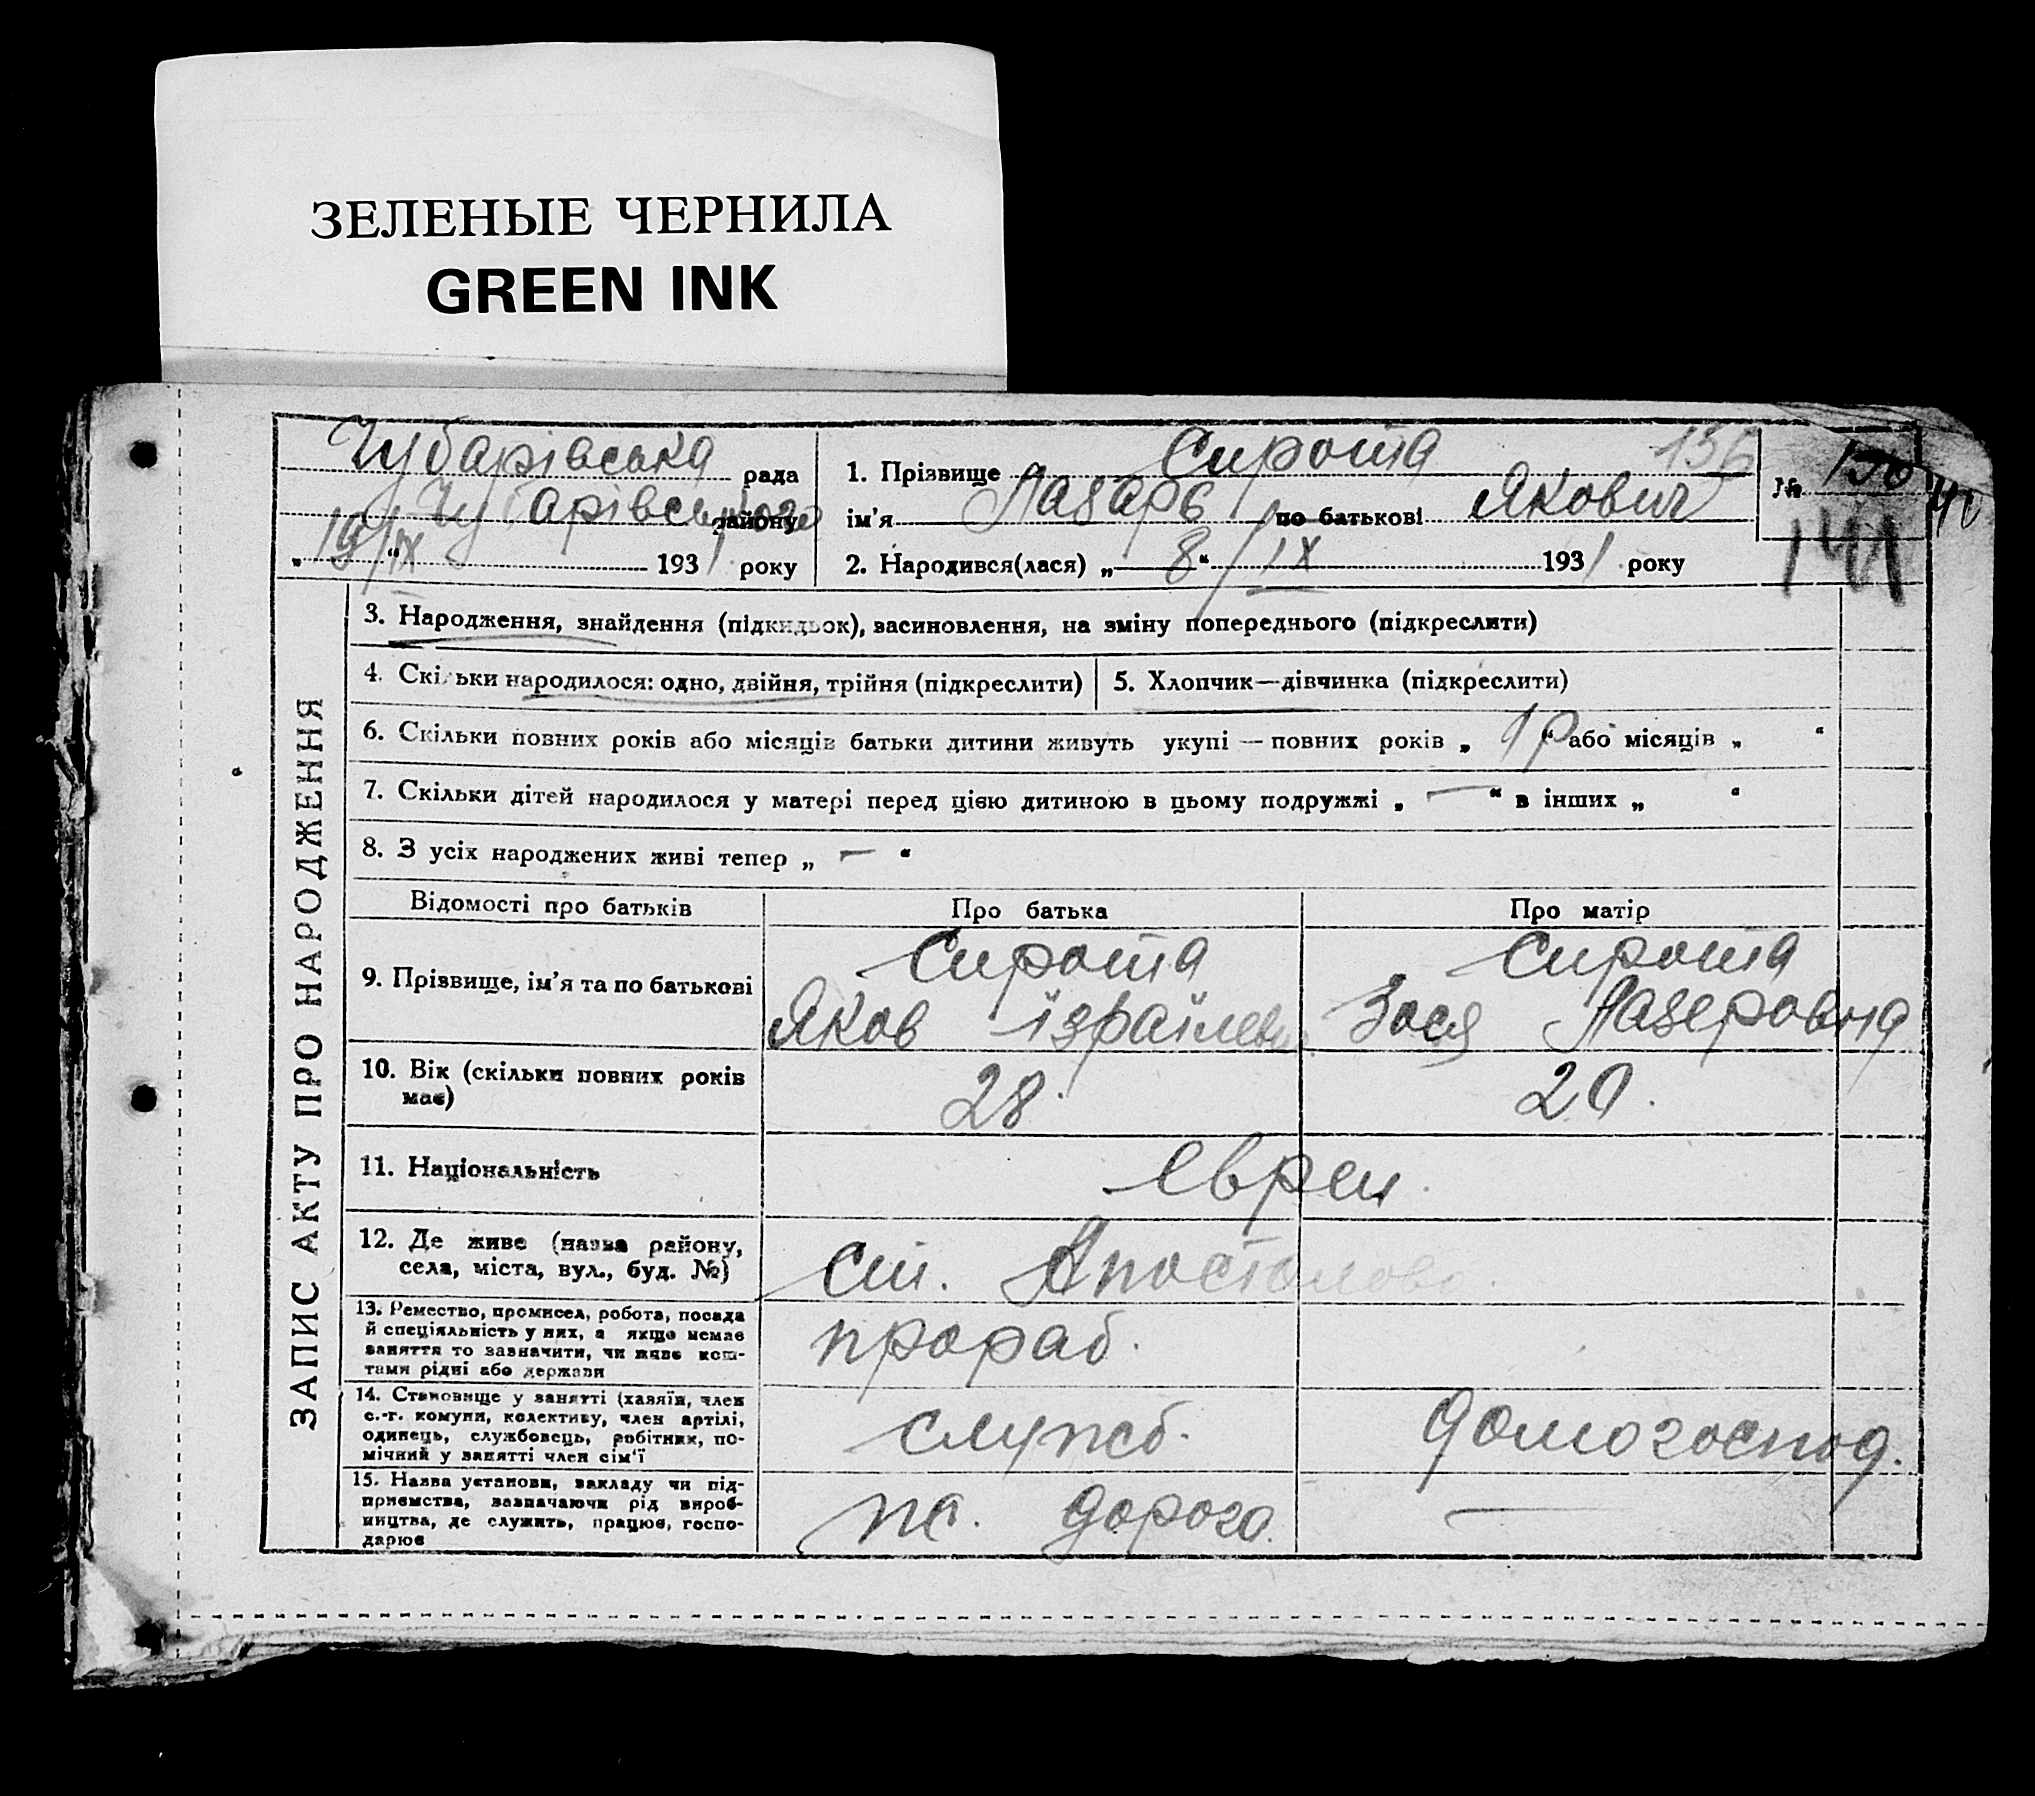 ЗЕЛЕНЫЕ ЧЕРНИЛА
GREEN INK
Чубарівська рада
Чубарівського району
„19/IX“ 1931 року
1. Прізвище Сирота 136
ім'я Лазарь по батькові Якович
2. Народився(лася) „8“/IX 1931 року
№
141
ЗАПИС АКТУ ПРО НАРОДЖЕННЯ
3. Народження, знайдення (підкидьок), засиновлення, на зміну попереднього (підкреслити)
4. Скільки народилося: одно, двійня, трійня (підкреслити)
5. Хлопчик—дівчинка (підкреслити)
6. Скільки повних років або місяців батьки дитини живуть укупі — повних років „1р“ або місяців „ “
7. Скільки дітей народилося у матері перед цією дитиною в цьому подружжі „—“ в інших „ “
8. З усіх народжених живі тепер „—“
Відомості про батьків
Про батька
Про матір
9. Прізвище, ім'я та по батькові
Сирота
Яков Ізраїлев
Сирота
Зося Лазеровна
10. Вік (скільки повних років
має)
28.
20.
11. Національність
Евреи
12. Де живе (назва району,
села, міста, вул., буд. №)
ст. Апостолово.
13. Ремество, промисел, робота, посада
й спеціяльність у них, а якщо немає
заняття то зазначити, чи живе кош-
тами рідні або держави
прораб.
14. Становище у занятті (хазяїн, член
с.-г. комуни, колективу, член артілі,
одинець, службовець, робітник, по-
мічний у занятті член сім'ї
служб.
домогоспод.
15. Назва установи, закладу чи під-
приємства, зазначаючи рід вироб-
ництва, де служить, працює, госпо-
дарює
дорога.
—